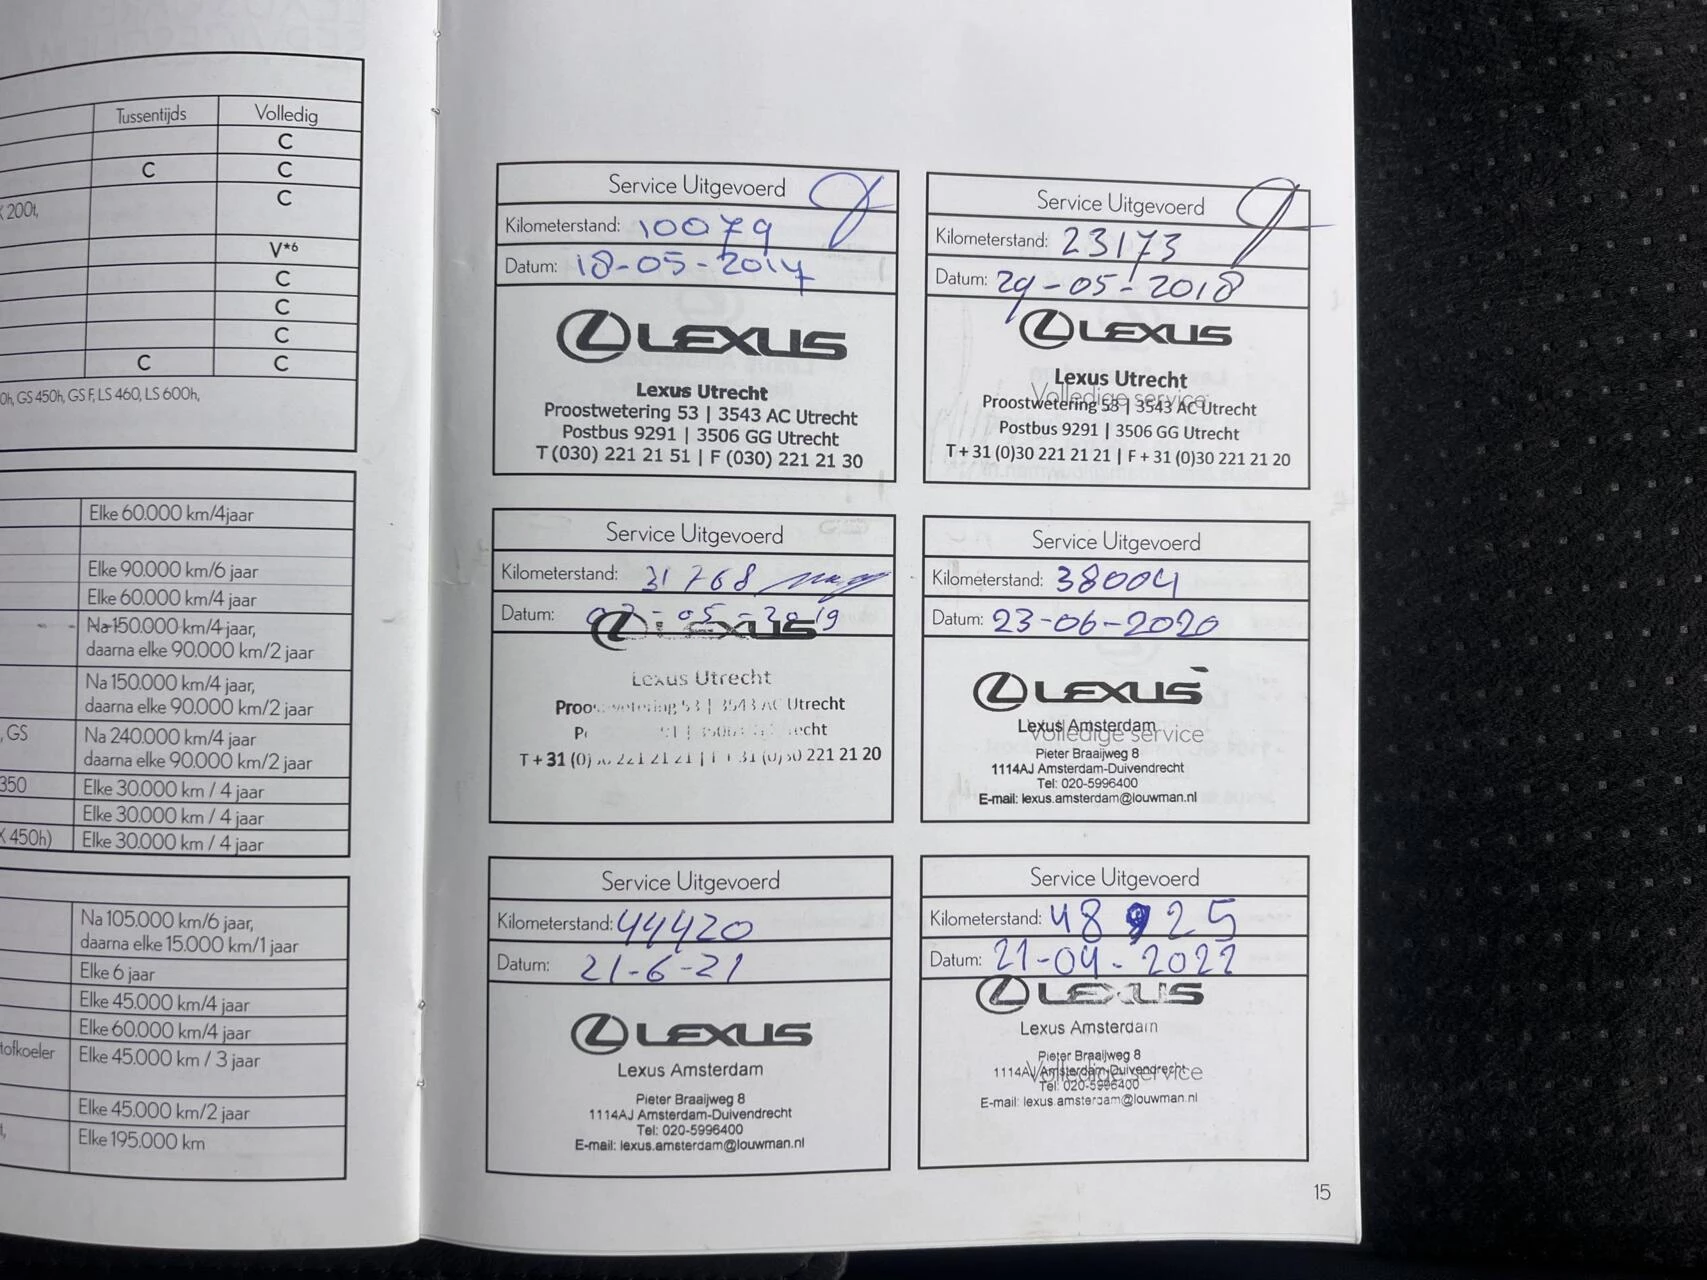 Tussentijds Volledig
C
C C
X 200t, C
V*6
C
C
C
C C
0h, GS 450h, GS F, LS 460, LS 600h,
Elke 60.000 km/4jaar
Elke 90.000 km/6 jaar
Elke 60.000 km/4 jaar
Na 150.000 km/4 jaar,
daarna elke 90.000 km/2 jaar
Na 150.000 km/4 jaar,
daarna elke 90.000 km/2 jaar
, GS Na 240.000 km/4 jaar
daarna elke 90.000 km/2 jaar
350 Elke 30.000 km / 4 jaar
Elke 30.000 km / 4 jaar
X 450h) Elke 30.000 km / 4 jaar
Na 105.000 km/6 jaar,
daarna elke 15.000 km/1 jaar
Elke 6 jaar
Elke 45.000 km/4 jaar
Elke 60.000 km/4 jaar
tofkoeler Elke 45.000 km / 3 jaar
Elke 45.000 km/2 jaar
Elke 195.000 km
Service Uitgevoerd
Kilometerstand: 10079
Datum: 18-05-2017
LEXUS
Lexus Utrecht
Proostwetering 53 | 3543 AC Utrecht
Postbus 9291 | 3506 GG Utrecht
T (030) 221 21 51 | F (030) 221 21 30
Service Uitgevoerd
Kilometerstand: 23173
Datum: 29-05-2018
LEXUS
Lexus Utrecht
Volledige service
Proostwetering 53 | 3543 AC Utrecht
Postbus 9291 | 3506 GG Utrecht
T + 31 (0)30 221 21 21 | F + 31 (0)30 221 21 20
Service Uitgevoerd
Kilometerstand: 31768
Datum: 07-05-2019
LEXUS
Lexus Utrecht
Proostwetering 53 | 3543 AC Utrecht
T + 31 (0)30 221 21 21 | F + 31 (0)30 221 21 20
Service Uitgevoerd
Kilometerstand: 38004
Datum: 23-06-2020
LEXUS
Lexus Amsterdam
Volledige service
Pieter Braaijweg 8
1114AJ Amsterdam-Duivendrecht
Tel: 020-5996400
E-mail: lexus.amsterdam@louwman.nl
Service Uitgevoerd
Kilometerstand: 44420
Datum: 21-6-21
LEXUS
Lexus Amsterdam
Pieter Braaijweg 8
1114AJ Amsterdam-Duivendrecht
Tel: 020-5996400
E-mail: lexus.amsterdam@louwman.nl
Service Uitgevoerd
Kilometerstand: 48925
Datum: 21-04-2022
LEXUS
Lexus Amsterdam
Pieter Braaijweg 8
1114AJ Amsterdam-Duivendrecht
Volledige service
Tel: 020-5996400
E-mail: lexus.amsterdam@louwman.nl
15